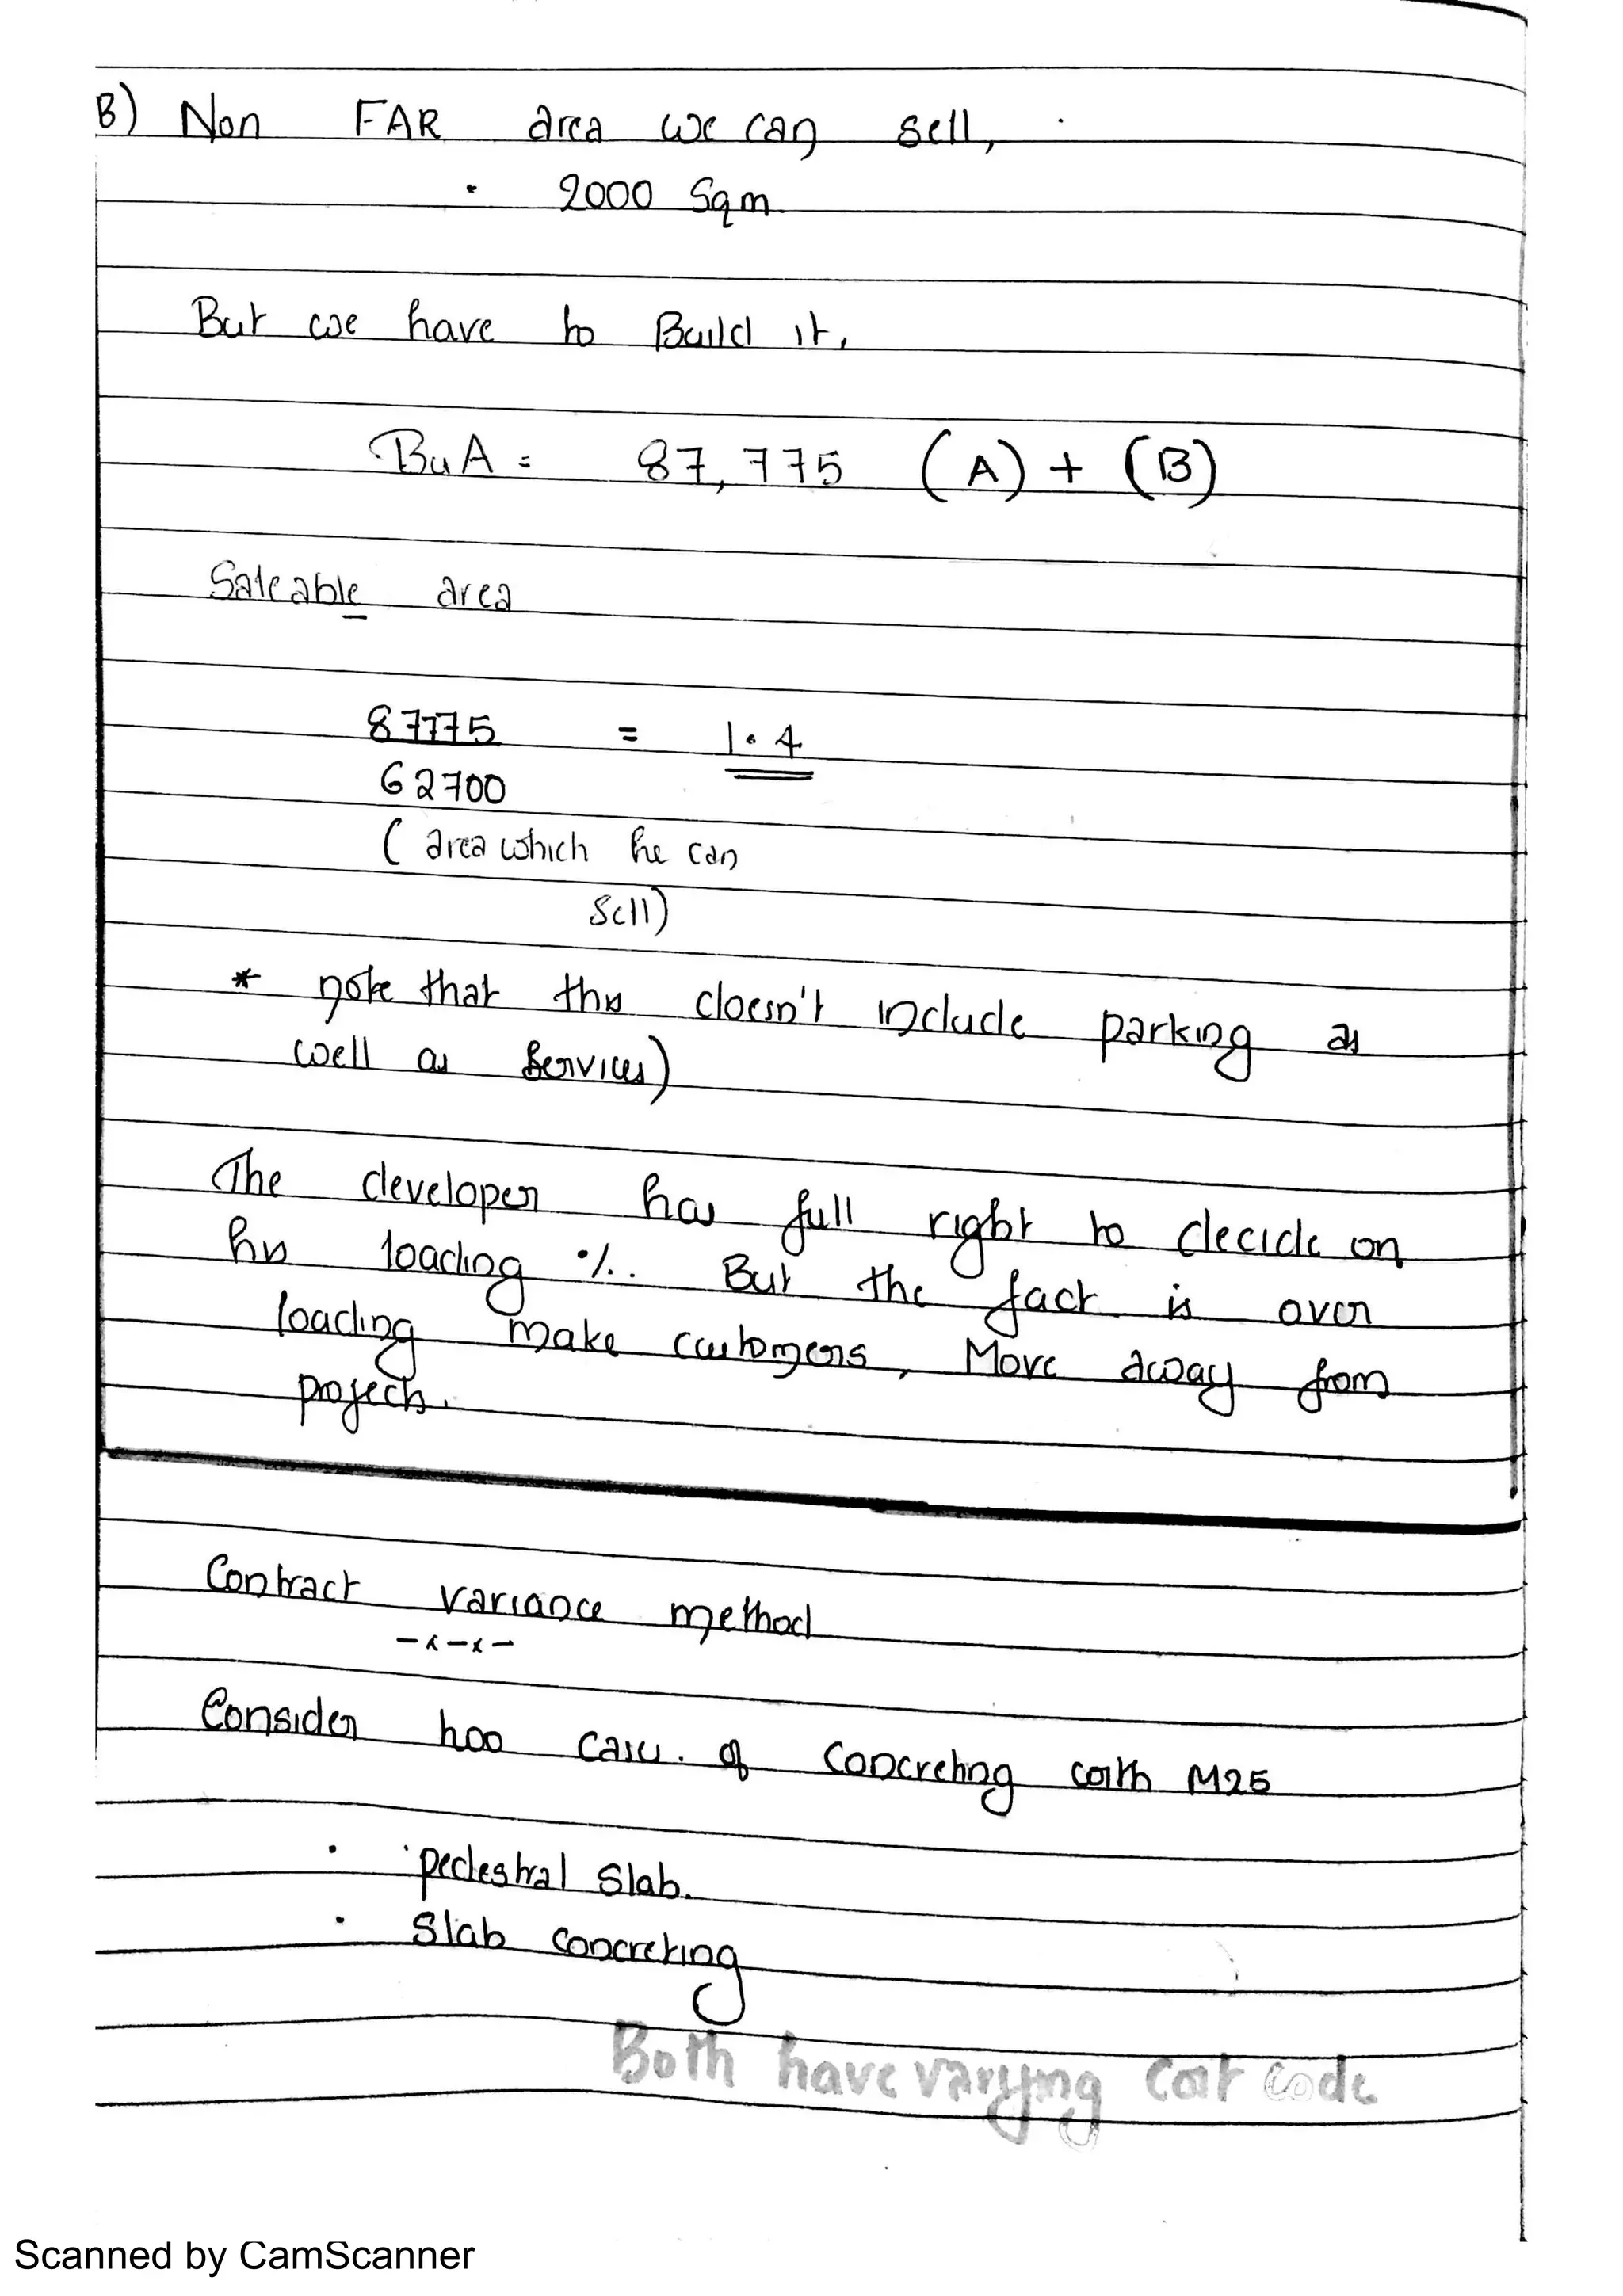 B) Non FAR area we can sell,
2000 Sqm.
But we have to Build it.
BuA = 87,775 (A) + (B)
Saleable area
87775 = 1.4
62700
(area which he can
sell)
* note that this doesn't include parking as
well as services)
The developer has full right to decide on
his loading %. But the fact is over
loading make customers, Move away from
projects.
Contract variance method
-x-x-
Consider two cases of concreting with M25
· pedestral Slab.
· Slab concreting
Both have varying cost code
Scanned by CamScanner